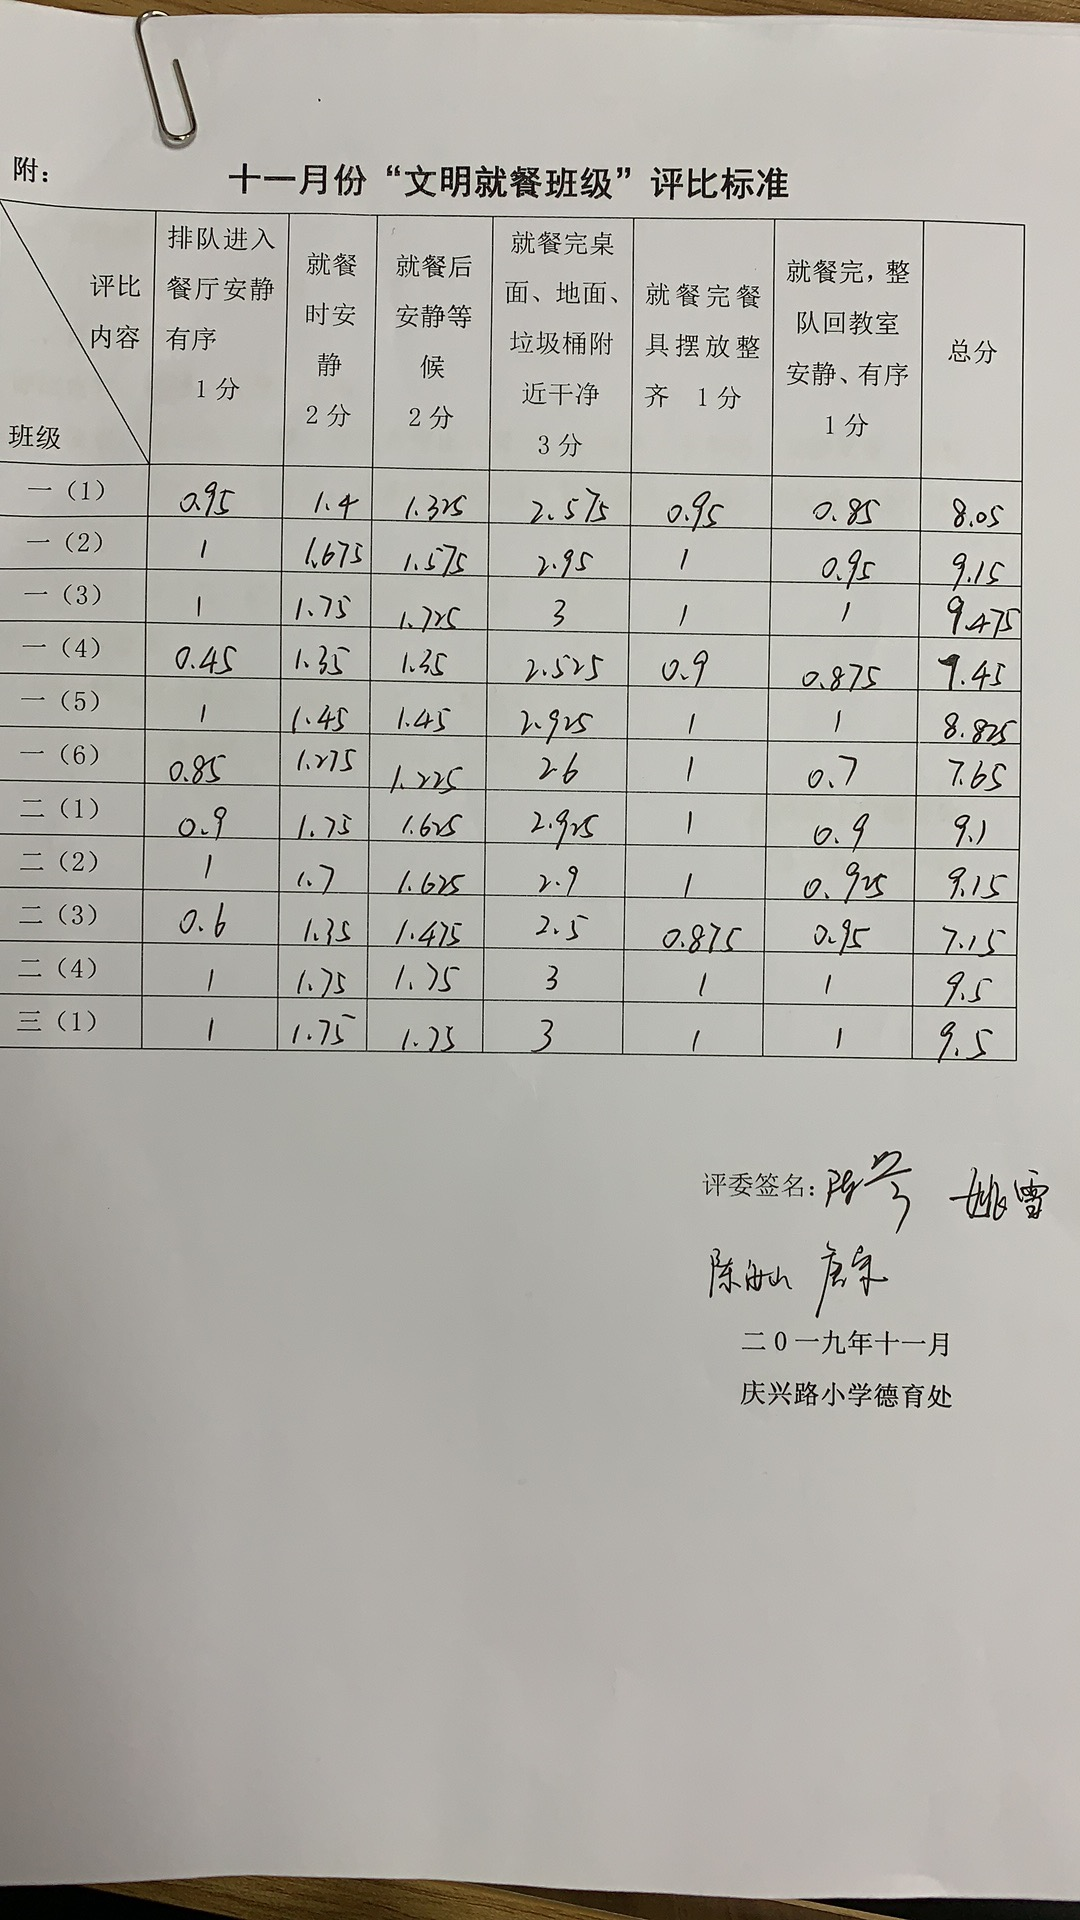 附：
十一月份“文明就餐班级”评比标准
评比内容 班级 排队进入餐厅安静有序 1分 就餐时安静 2分 就餐后安静等候 2分 就餐完桌面、地面、垃圾桶附近干净 3分 就餐完餐具摆放整齐 1分 就餐完，整队回教室安静、有序 1分 总分
一（1） 0.95 1.4 1.325 2.575 0.95 0.85 8.05
一（2） 1 1.675 1.575 2.95 1 0.95 9.15
一（3） 1 1.75 1.725 3 1 1 9.475
一（4） 0.45 1.35 1.35 2.525 0.9 0.875 7.45
一（5） 1 1.45 1.45 2.925 1 1 8.825
一（6） 0.85 1.275 1.225 2.6 1 0.7 7.65
二（1） 0.9 1.75 1.625 2.925 1 0.9 9.1
二（2） 1 1.7 1.625 2.9 1 0.925 9.15
二（3） 0.6 1.35 1.475 2.5 0.875 0.95 7.15
二（4） 1 1.75 1.75 3 1 1 9.5
三（1） 1 1.75 1.75 3 1 1 9.5
评委签名： 姚雪
二0一九年十一月
庆兴路小学德育处